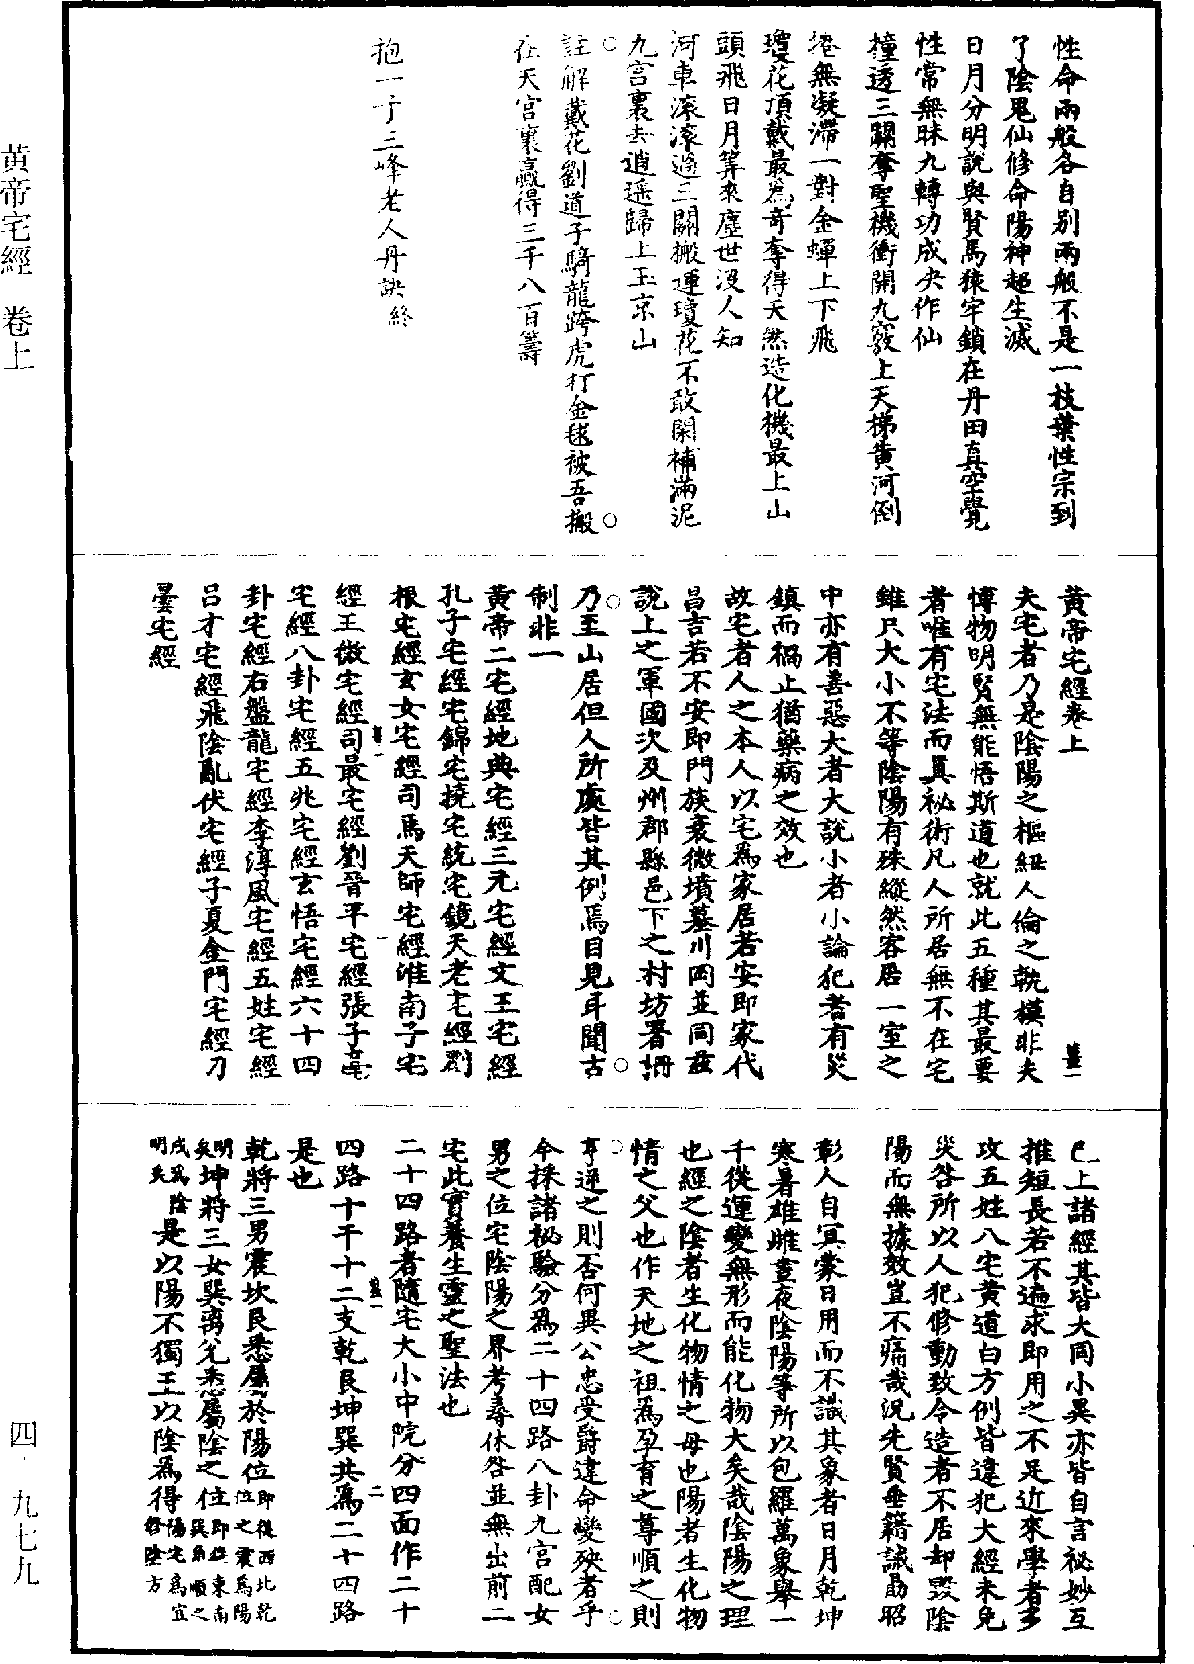 黃帝宅經　卷上
四·九七九
性命兩般各自别兩般不是一枝葉性宗到
了陰鬼仙修命陽神超生滅
日月分明説與賢馬猿牢鎖在丹田真空覺
性常無昧九轉功成夬作仙
撞透三關奪聖機衝開九竅上天梯黄河倒
捲無凝滯一對金蟬上下飛
瓊花頂戴最爲奇奪得天然造化機最上山
頭飛日月筭來塵世没人知
河車滚滚過三關搬運瓊花不敢閑補滿泥
九宫裏去逍遥歸上玉京山
註解戴花劉道子騎龍跨虎打金毬被吾搬
在天宫裏贏得三千八百籌
抱一子三峰老人丹訣終
黄帝宅經卷上
夫宅者乃是陰陽之樞紐人倫之軌模非夫
博物明賢無能悟斯道也就此五種其最要
者唯有宅法而真秘術凡人所居無不在宅
雖只大小不等陰陽有殊縱然客居一室之
中亦有善惡大者大説小者小論犯者有災
鎮而禍止猶藥病之效也
故宅者人之本人以宅爲家居若安即家代
昌吉若不安即門族衰微墳墓川岡並同兹
説上之軍國次及州郡縣邑下之村坊署柵
乃至山居但人所處皆其例焉目見耳聞古
制非一
黄帝二宅經地典宅經三元宅經文王宅經
孔子宅經宅錦宅撓宅統宅鏡天老宅經劉
根宅經玄女宅經司馬天師宅經淮南子宅
經王微宅經司最宅經劉晉平宅經張子毫
宅經八卦宅經五兆宅經玄悟宅經六十四
卦宅經右盤龍宅經李淳風宅經五姓宅經
吕才宅經飛陰亂伏宅經子夏金門宅經刁
曇宅經
已上諸經其皆大同小異亦皆自言秘妙互
推短長若不遍求即用之不足近來學者多
攻五姓八宅黄道白方例皆違犯大經未免
災咎所以人犯修動致令造者不居却毁陰
陽而無據效豈不痛哉況先賢垂籍誡勗昭
彰人自冥蒙日用而不識其象者日月乾坤
寒暑雄雌晝夜陰陽等所以包羅萬象舉一
千從運變無形而能化物大矣哉陰陽之理
也經之陰者生化物情之母也陽者生化物
情之父也作天地之祖爲孕育之尊順之則
亨逆之則否何異公忠受爵違命變殃者乎
今採諸秘驗分爲二十四路八卦九宫配女
男之位宅陰陽之界考尋休咎並無出前二
宅此實養生靈之聖法也
二十四路者隨宅大小中院分四面作二十
四路十干十二支乾艮坤巽共爲二十四路
是也
乾將三男震坎艮悉屬於陽位即從西北乾位之震爲陽
明矣坤將三女巽离兑悉屬陰之位即從東南巽角順之
戌爲陰明矣是以陽不獨王以陰爲得陽宅爲宜